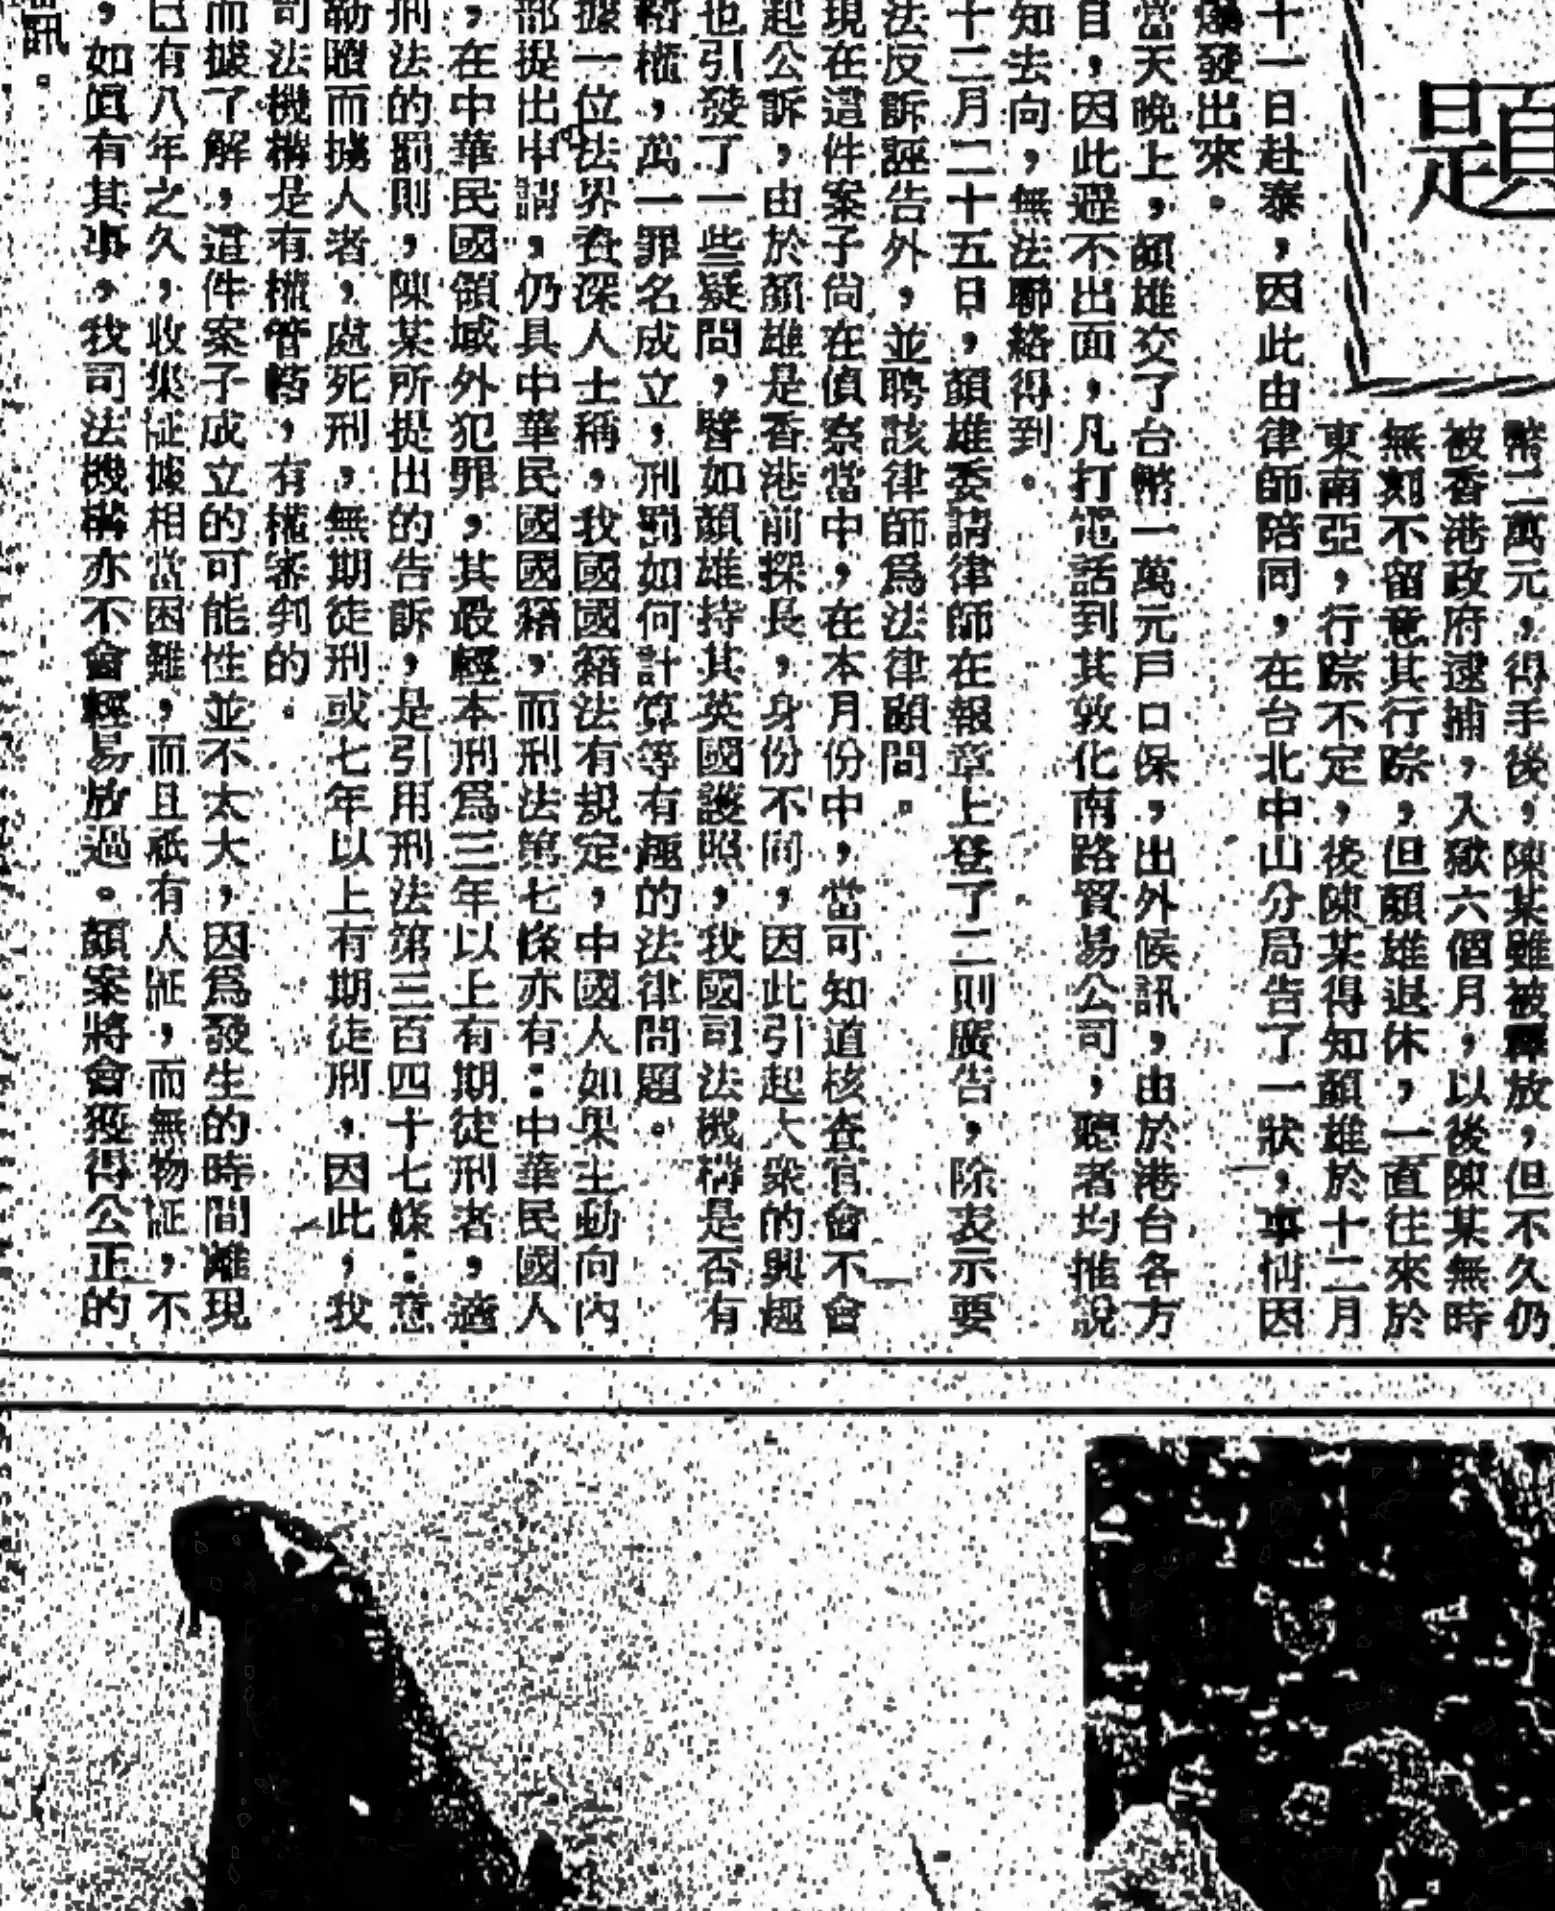 題
幣二萬元，得手後，陳某雖被釋放，但不久仍
被香港政府逮捕，入獄六個月，以後陳某無時
無刻不留意其行踪，但顏雄退休，一直往來於
東南亞，行踪不定，後陳某得知顏雄於十二月
十一日赴泰，因此由律師陪同，在台北中山分局告了一狀，事情因
爆發出來。
當天晚上，顏雄交了台幣一萬元戶口保，出外候訊，由於港台各方
目，因此避不出面，凡打電話到其敦化南路貿易公司，聽者均推說
知去向，無法聯絡得到。
十二月二十五日，顏雄委請律師在報章上登了二則廣告，除表示要
法反訴誣告外，並聘該律師爲法律顧問。
現在這件案子尙在偵察當中，在本月份中，當可知道核查官會不會
起公訴，由於顏雄是香港前探長，身份不同，因此引起大衆的興趣
也引發了一些疑問，譬如顏雄持其英國護照，我國司法機構是否有
轄權，萬一罪名成立，刑罰如何計算等有趣的法律問題。
據一位法界資深人士稱，我國國籍法有規定，中國人如果主動向內
部提出申請，仍具中華民國國籍，而刑法第七條亦有：中華民國人
，在中華民國領域外犯罪，其最輕本刑爲三年以上有期徒刑者，適
刑法的罰則，陳某所提出的告訴，是引用刑法第三百四十七條：意
勒贖而擄人者，處死刑，無期徒刑或七年以上有期徒刑，因此，我
司法機構是有權管轄，有權審判的。
而據了解，這件案子成立的可能性並不太大，因爲發生的時間離現
已有八年之久，收集証據相當困難，而且祇有人証，而無物証，不
，如眞有其事，我司法機構亦不會輕易放過。顏案將會獲得公正的
訊。